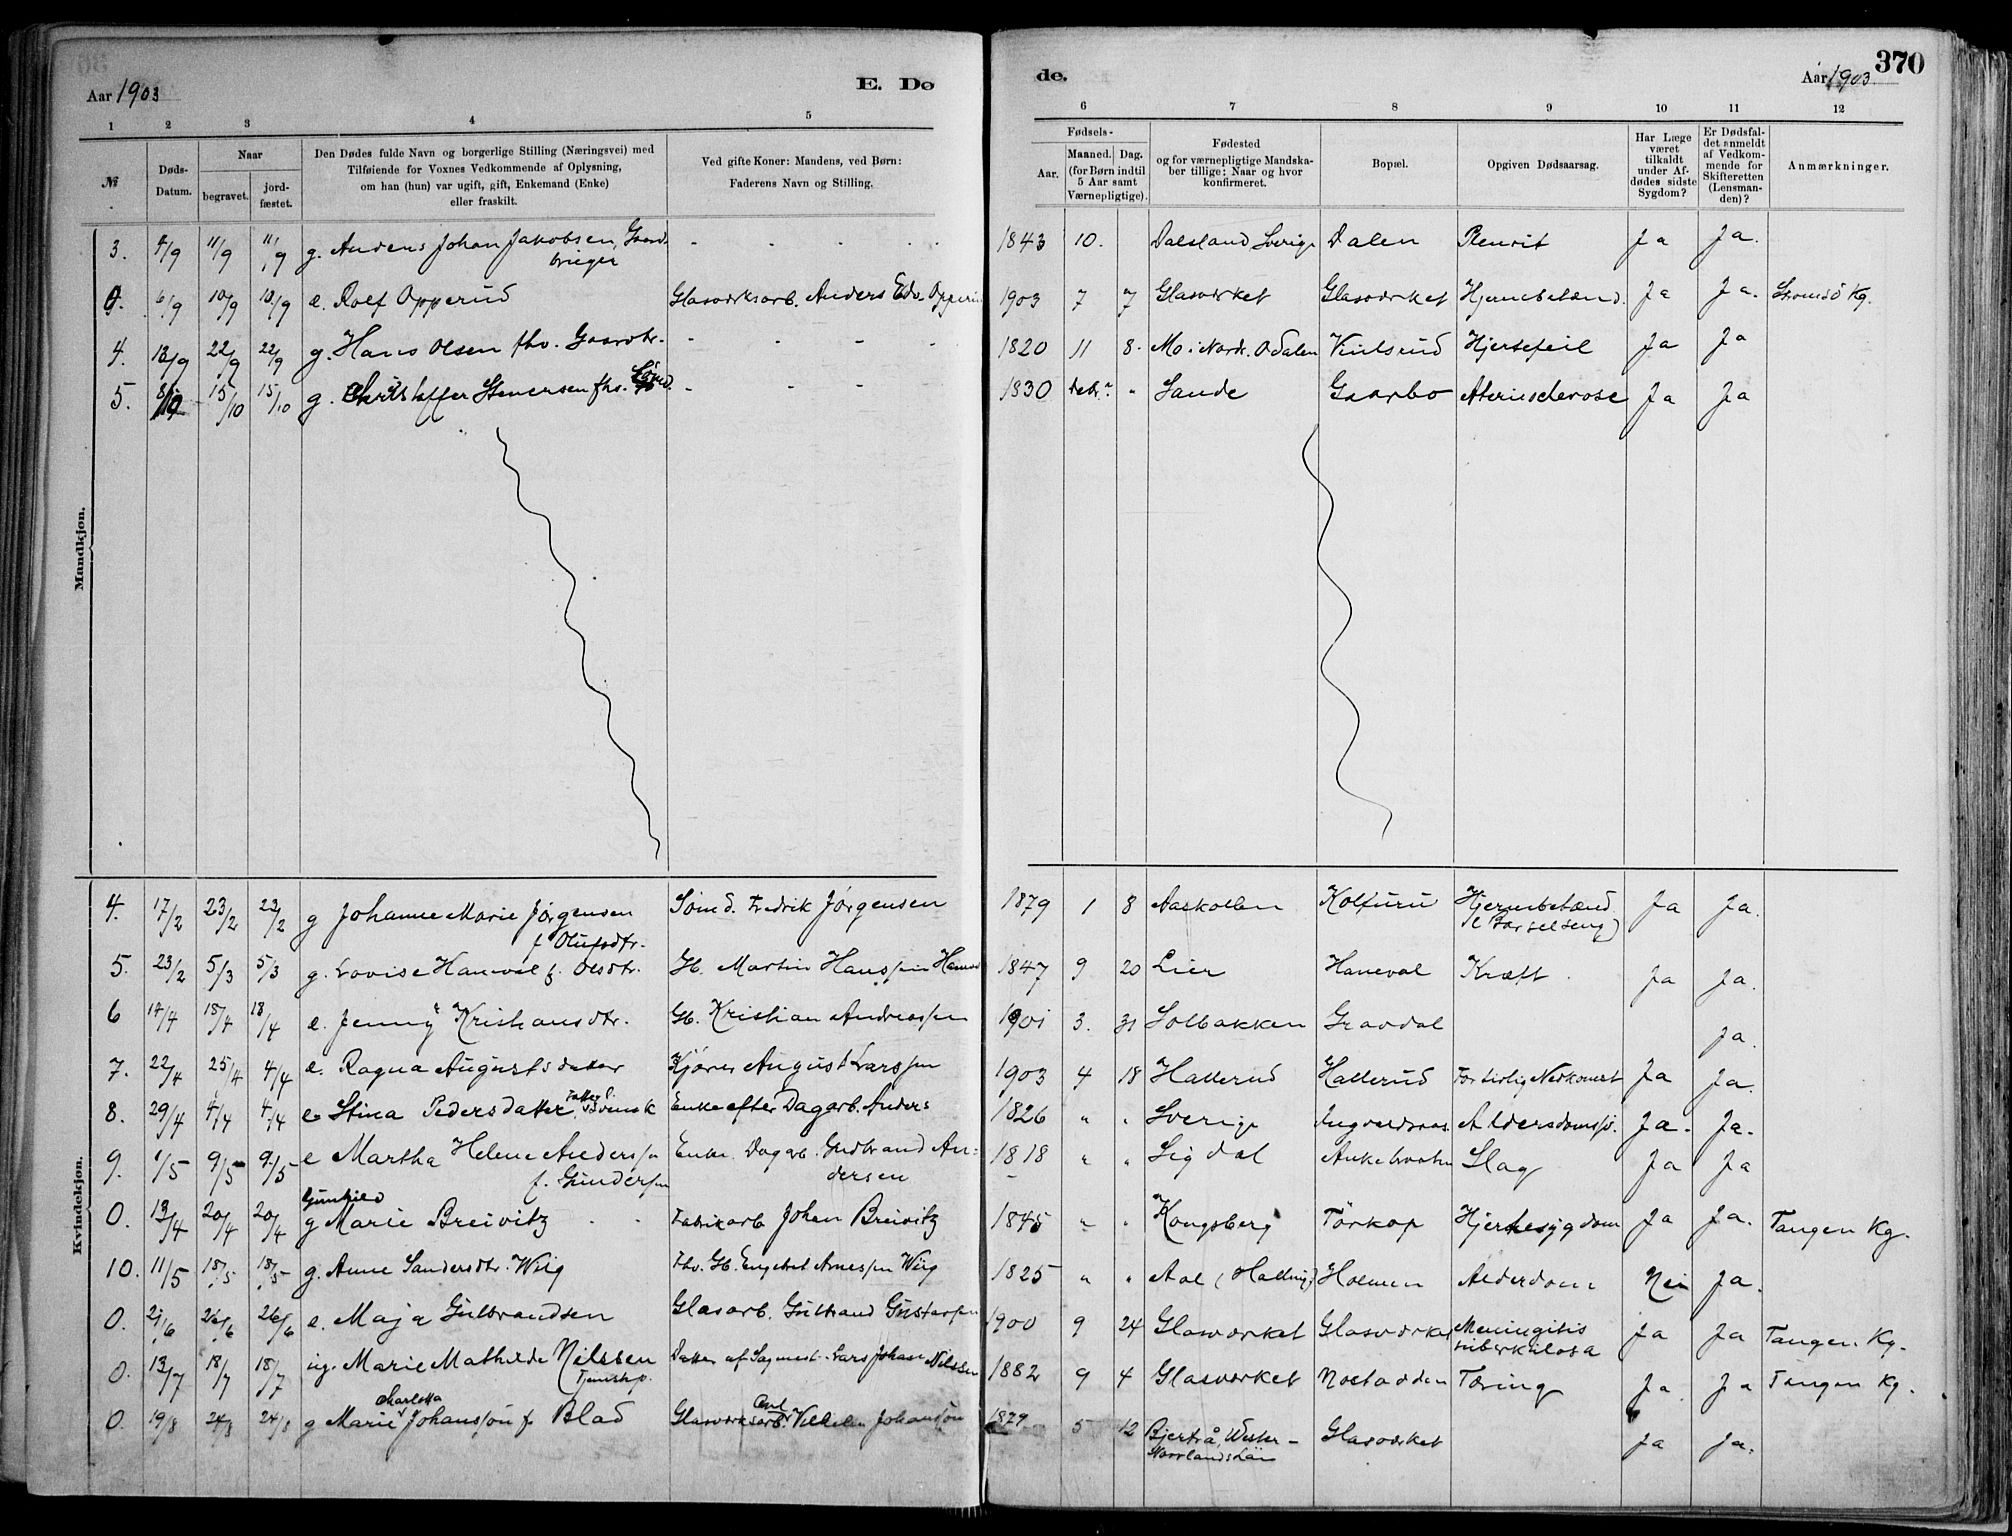 370
Aar 1903
E. Dø
de.
Aar 1903
1 2 3 4 5 6 7 8 9 10 11 12
№
Døds-Datum.
Naar
begravet.
jord-fæstet.
Den Dødes fulde Navn og borgerlige Stilling (Næringsvei) med
Tilføiende for Voxnes Vedkommende af Oplysning,
om han (hun) var ugift, gift, Enkemand (Enke)
eller fraskilt.
Ved gifte Koner: Mandens, ved Børn:
Faderens Navn og Stilling.
Fødsels-
Aar.
Maaned. Dag.
(for Børn indtil
5 Aar samt
Værnepligtige).
Fødested
og for værnepligtige Mandska-
ber tillige: Naar og hvor
konfirmeret.
Bopæl.
Opgiven Dødsaarsag.
Har Læge
været
tilkaldt
under Af-
dødes sidste
Sygdom?
Er Dødsfal-
det anmeldt
af Vedkom-
mende for
Skifteretten
(Lensman-
den)?
Anmærkninger.
Mandkjøn.
3. 4/9 11/9 11/9 g. Anders Johan Jakobsen, Gaard- 1843 10. Dalsland Sverige Dalen Ja Ja.
bruger
0. 6/9 10/9 10/9 e. Rolf Opperud Glasværksarb. Anders Edv. Opperud 1903 7 7 Glasværket Glasværket Hjernebetænd. Ja Ja. Strømsö Kg.
4. 22/9 22/9 g. Hans Olsen fhv. Gaardbr. 1820 11 8. Mo i Nordr. Odalen Hjertefeil Ja Ja
5. 15/10 15/10 g. Christoffer Stenersen fhv. 1830 Debr. " Sande Gaarbo Ateriosclerose Ja Ja
Kvindekjøn.
4. 17/2 23/2 23/2 g Johanne Marie Jørgensen Sømd. Fredrik Jørgensen 1879 1 8 Aaskollen Kolfuru Hjernebetænd. Ja Ja.
f. Olufsdtr. (e Barselseng)
5. 23/2 5/3 5/3 g. Lovise Haneval f. Olsdtr. Gb. Martin Hanssen Haneval 1847 9 20 Lier Haneval Kræft Ja Ja.
6 14/4 18/4 18/4 e. Jenny Kristiansdtr. Gb. Kristian Andreassen 1901 3. 31 Solbakken Gravdal Ja.
7. 22/4 25/4 4/4 e. Ragna Augustsdatter Kjører August Larssen 1903 4 18 Hallerud Hallerud For tidlig Nedkomst Ja Ja.
8. 29/4 4/4 4/4 e Stina Pedersdatter, Svensk Enke efter Dagarb. Anders 1826 " " Sverige Aldersdomssv. Ja. Ja.
9. 1/5 9/5 9/5 e Martha Helene Anderssen Enke. Dagarb. Gudbrand An- 1818 " " Sigdal Slag Ja Ja
f. Gundersen dersen
Gunhild
0. 13/4 20/4 20/4 g Marie Breivitz Fabrikarb. Johan Breivitz 1845 " " Kongsberg Törkop Hjertesygdom Ja Ja. Tangen Kg.
10. 11/5 18/5 18/5 g. Anne Sandersdtr. Wiig Fhv. Gb. Engebret Arnessen Wiig 1825 " " Aal (Halling) Holmen Alderdom Nei Ja.
0. 21/6 26/6 26/6 e. Maja Gulbrandsen Glasarb. Gulbrand Gustavsen 1900 9 24 Glasværket Glasværket Meningitis Ja Ja Tangen Kg.
tuberkulosa
0. 13/7 18/7 18/7 ug. Marie Mathilde Nilssen Datter af Sagmest. Lars Johan Nilssen 1882 9 4 Glasværket Nøstodden Tæring Ja Ja Tangen Kg.
Tjenstp.
Charlotta Carl
0. 19/8 24/8 24/8 g Marie Johansson f. Blad Glasværksarb. Vilhelm Johansson 1879 5 12 Bjertrå, Wester- Glasværket Ja Ja.
Norrlands Län